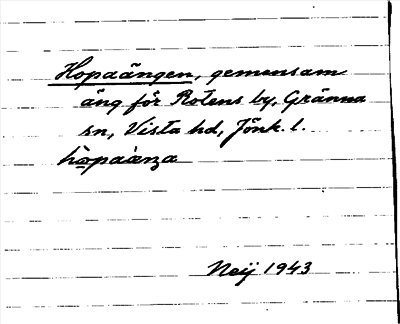 Hopaängen, gemensam
äng för Rotens by, Gränna
sn, Vista hd, Jönk. l.
hòpaànza
Neij 1943